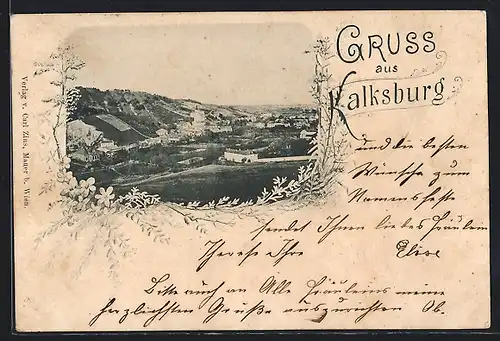 GRUSS
aus
Kalksburg
Verlag v. Carl Zins, Mauer b. Wien.
und die besten
Wünsche zum
Namensfeste
sendet Ihnen liebes Fräulein
Therese Ihre Elise
Bitte auch an Alle Fräuleins meine
herzlichsten Grüße auszurichten Ob.